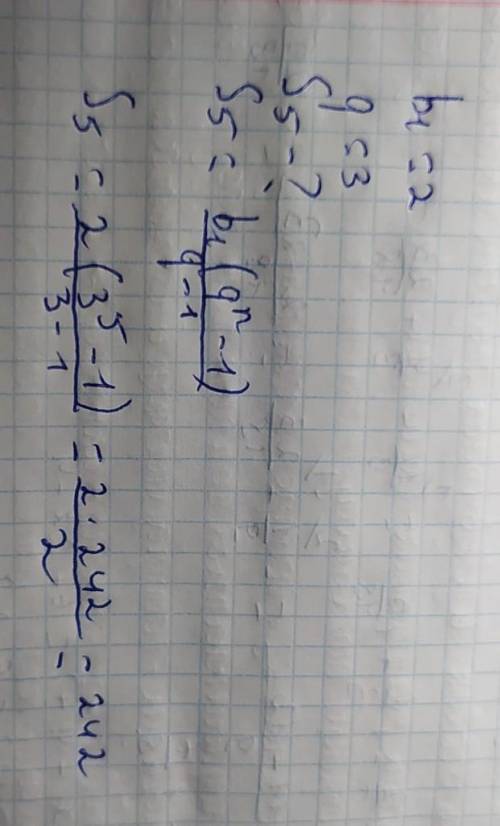 b₁ = 2
q = 3
S₅ - ?
S₅ = b₁(qⁿ - 1) / q - 1
S₅ = 2(3⁵ - 1) / 3 - 1 = 2 · 242 / 2 = 242